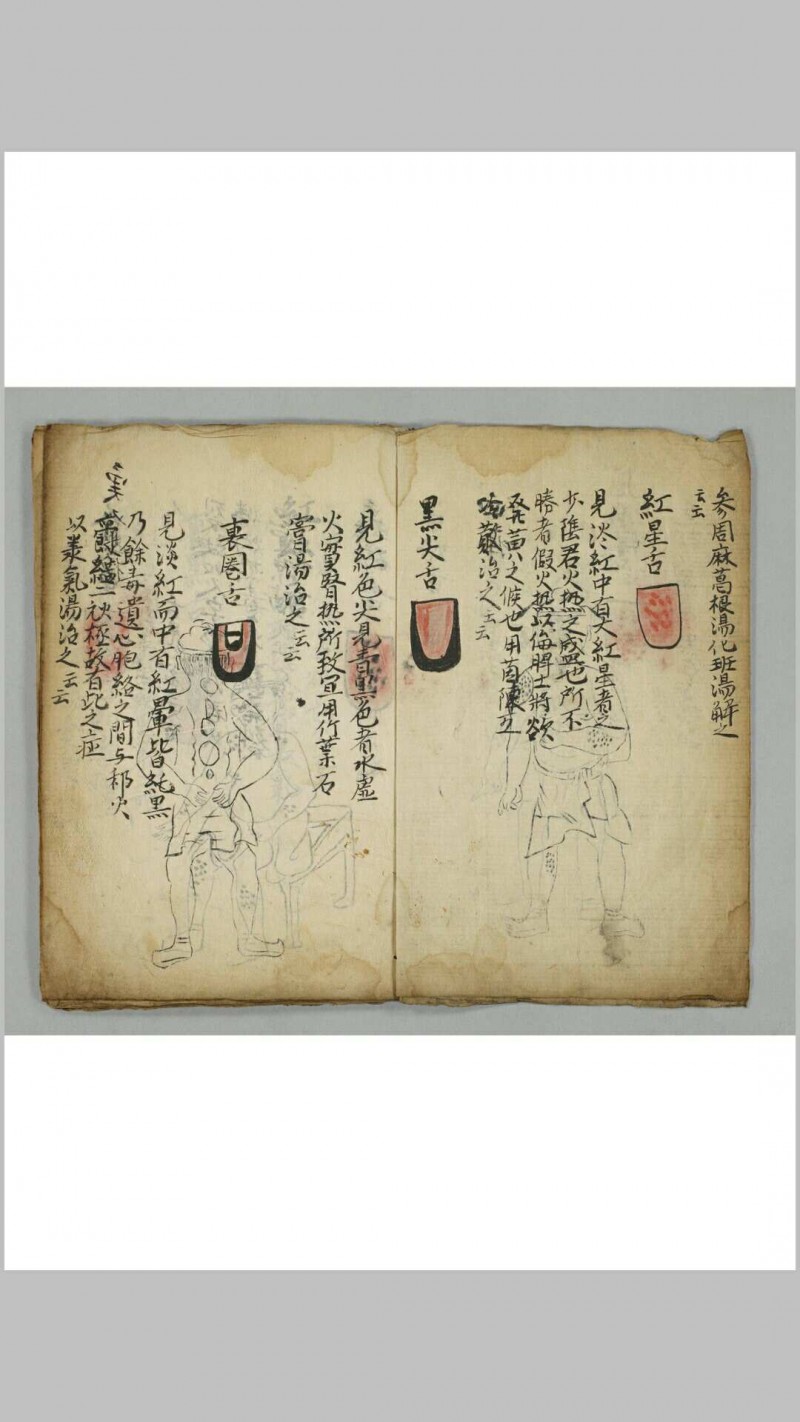 参周麻葛根湯化班湯解之
云云
紅星舌
見淡紅中有大紅星者之
少陰君火热之盛也所不
勝者假火热以侮脾土将欲
発黄之候也用茵陳五
治之云云
黒尖舌
見紅色尖見青黒色者水虚
火實腎热所致宜用竹葉石
膏湯治之云云
裏圏舌
見淡紅而中有紅暈皆純黒
乃餘毒遺心胞絡之間与邪火
二秋極故有此之症
以義氣湯治之云云